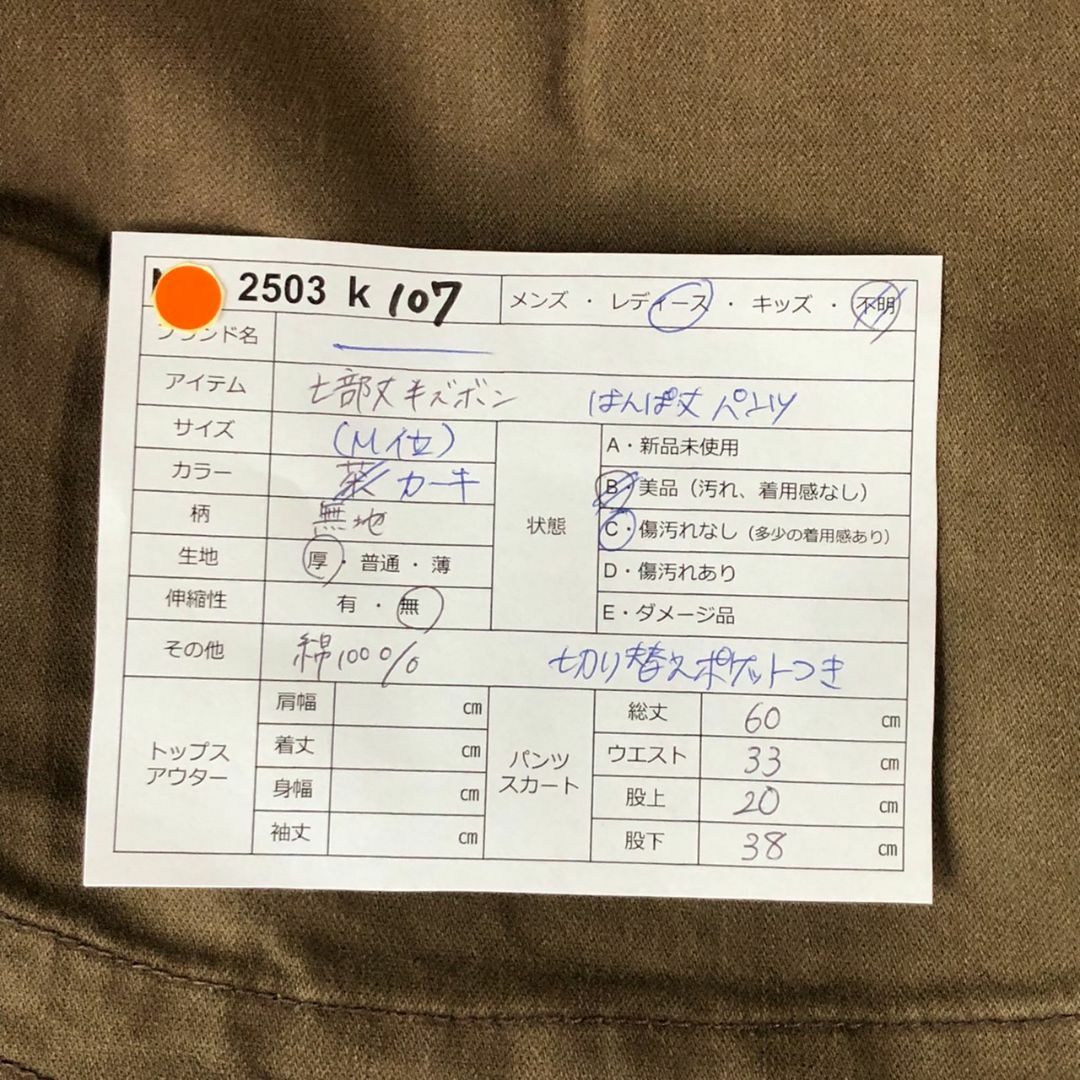 2503 k 107
メンズ ・ レディース ・ キッズ ・ 不明
ブランド名
アイテム 七部丈半ズボン はんぱ丈パンツ
サイズ (M位)
カラー 茶 カーキ
柄 無地
生地 厚・普通・薄
伸縮性 有・無
状態
A・新品未使用
B・美品（汚れ、着用感なし）
C・傷汚れなし（多少の着用感あり）
D・傷汚れあり
E・ダメージ品
その他 綿100% 切り替えポケットつき
トップス
アウター
肩幅 cm
着丈 cm
身幅 cm
袖丈 cm
パンツ
スカート
総丈 60 cm
ウエスト 33 cm
股上 20 cm
股下 38 cm